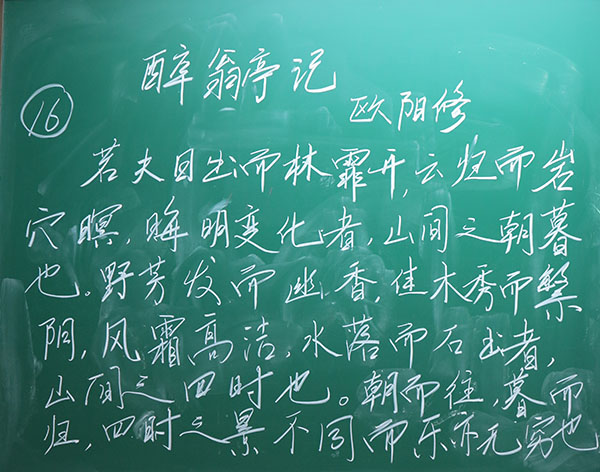 醉翁亭记
16
欧阳修
若夫日出而林霏开,云归而岩
穴暝,晦明变化者,山间之朝暮
也。野芳发而幽香,佳木秀而繁
阴,风霜高洁,水落而石出者,
山间之四时也。朝而往,暮而
归,四时之景不同而乐亦无穷也